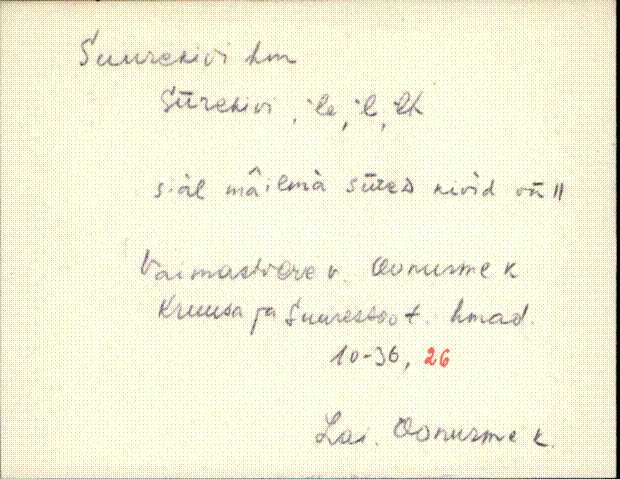 Suurekivi hm
Sūrekivi, ˋle, ˋl, ˋlt
siäl mäilmä sūred kivid on ||
Vaimastvere v. Oonurme k
Kruusa ja Suuressoo t. hmad.
10-36, 26
Lai. Oonurme k.